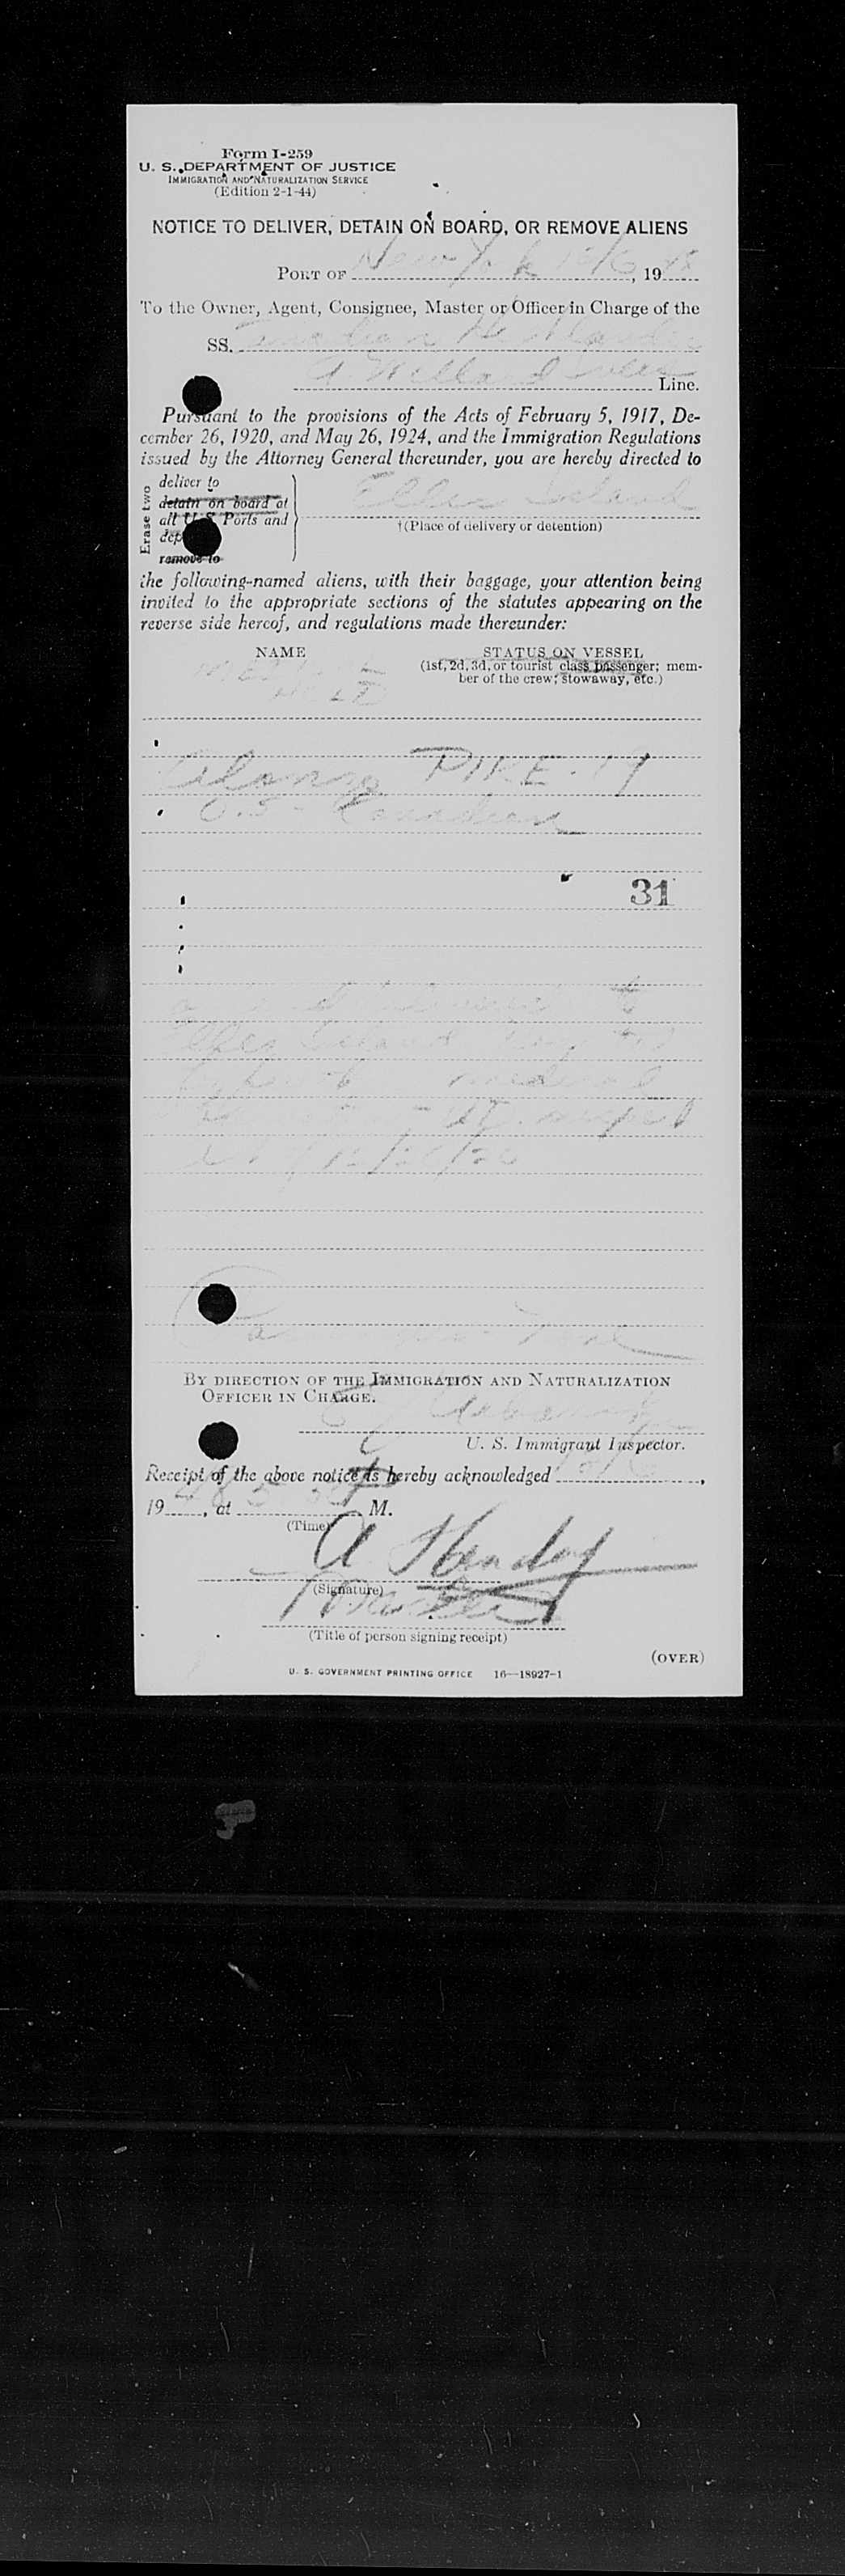 Form I-259
U. S. DEPARTMENT OF JUSTICE
IMMIGRATION AND NATURALIZATION SERVICE
(Edition 2-1-44)
NOTICE TO DELIVER, DETAIN ON BOARD, OR REMOVE ALIENS
PORT OF New York 10/6, 1948
To the Owner, Agent, Consignee, Master or Officer in Charge of the
SS.
Line.
Pursuant to the provisions of the Acts of February 5, 1917, De-
cember 26, 1920, and May 26, 1924, and the Immigration Regulations
issued by the Attorney General thereunder, you are hereby directed to
Erase two
deliver to
detain on board at
all U. S. Ports and
dep
remove to
Ellis Island
†(Place of delivery or detention)
the following-named aliens, with their baggage, your attention being
invited to the appropriate sections of the statutes appearing on the
reverse side hereof, and regulations made thereunder:
NAME
STATUS ON VESSEL
(1st, 2d, 3d, or tourist class passenger; mem-
ber of the crew; stowaway, etc.)
HOLD
Alonzo PIKE - 19
O.S - Canadian
31
to
Ellis Island
medical
12/26/20
BY DIRECTION OF THE IMMIGRATION AND NATURALIZATION
OFFICER IN CHARGE.
U. S. Immigrant Inspector.
Receipt of the above notice is hereby acknowledged 10/6,
1948, at 5 P M.
(Time)
A Handy
(Signature)
Master
(Title of person signing receipt)
(OVER)
U. S. GOVERNMENT PRINTING OFFICE 16—18927-1